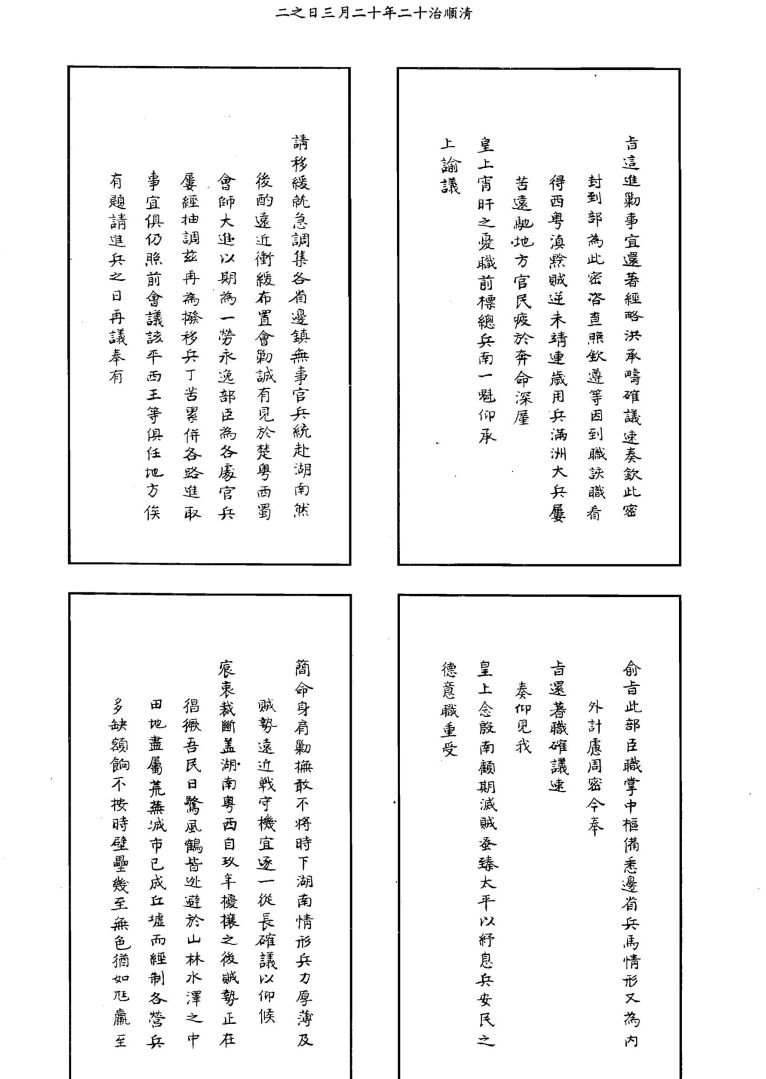 二之日三月二十年二十治順清
旨這進勦事宜還著經略洪承疇確議速奏欽此密
封到部為此密咨查照欽遵等因到職該職看
得西粤滇黔賊逆未靖連歲用兵滿洲大兵屢
苦遠馳地方官民疲於奔命深廑
皇上宵旰之憂職前標總兵南一魁仰承
上諭議
請移緩就急調集各省邊鎮無事官兵統赴湖南然
後酌遠近衝緩布置會勦誠有見於楚粤西蜀
會師大進以期為一勞永逸部臣為各處官兵
屢經抽調茲再為撥移兵丁苦累併各路進取
事宜俱仍照前會議該平西王等俱任地方俟
有題請進兵之日再議奉有
俞旨此部臣職掌中樞備悉邊省兵馬情形又為內
外計慮周密今奉
旨還著職確議速
奏仰見我
皇上念殷南顧期滅賊蚤臻太平以紓息兵安民之
德意職重受
簡命身肩勦撫敢不將時下湖南情形兵力厚薄及
賊勢遠近戰守機宜逐一從長確議以仰候
宸衷裁斷蓋湖南粤西自玖年擾攘之後賊勢正在
倡獗吾民日驚風鶴皆迯避於山林水澤之中
田地盡屬荒蕪滅市已成丘墟而經制各營兵
多缺額餉不按時壁壘幾至無色猶如尫羸至